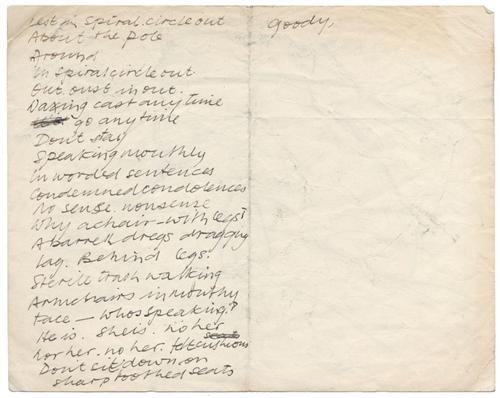 Lest in spiral. circle out
About the pole
Around
In spiral circle out.
Out. oust in out.
cast anytime
go anytime
Don't stay
Speaking mouthly
In worded sentences
Condemned condolences
No sense. nonsense
Why a chair – with legs?
A barrell dregs dragging
lag. Behind legs.
Sterile trash walking
Armchairs in mouthy
Face – Whos speaking?
He is. She is. No her
Nor her. no her. fat cushions
Don't sit down on
sharp toothed seats
goody,